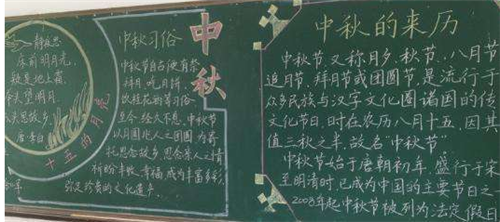 静夜思
床前明月光
疑是地上霜
举头望明月
李白
十五的月亮
中秋习俗
中秋节自古便有祭
拜月、吃月饼、
饮桂花酒等习俗
至今,经久不息。中秋节
以月圆兆人之团圆,为寄
托思念故乡,思念亲人之情
祈盼丰收、幸福,成为丰富多彩、
弥足珍贵的文化遗产。
中秋
中秋的来历
中秋节,又称月夕、秋节、八月节
追月节、拜月节或团圆节,是流行于
众多民族与汉字文化圈诸国的传
文化节日,时在农历八月十五,因其
值三秋之半,故名“中秋节”
中秋节始于唐朝初年,盛行于宋
至明清时,已成为中国的主要节日之
2008年起中秋节被列为法定假日